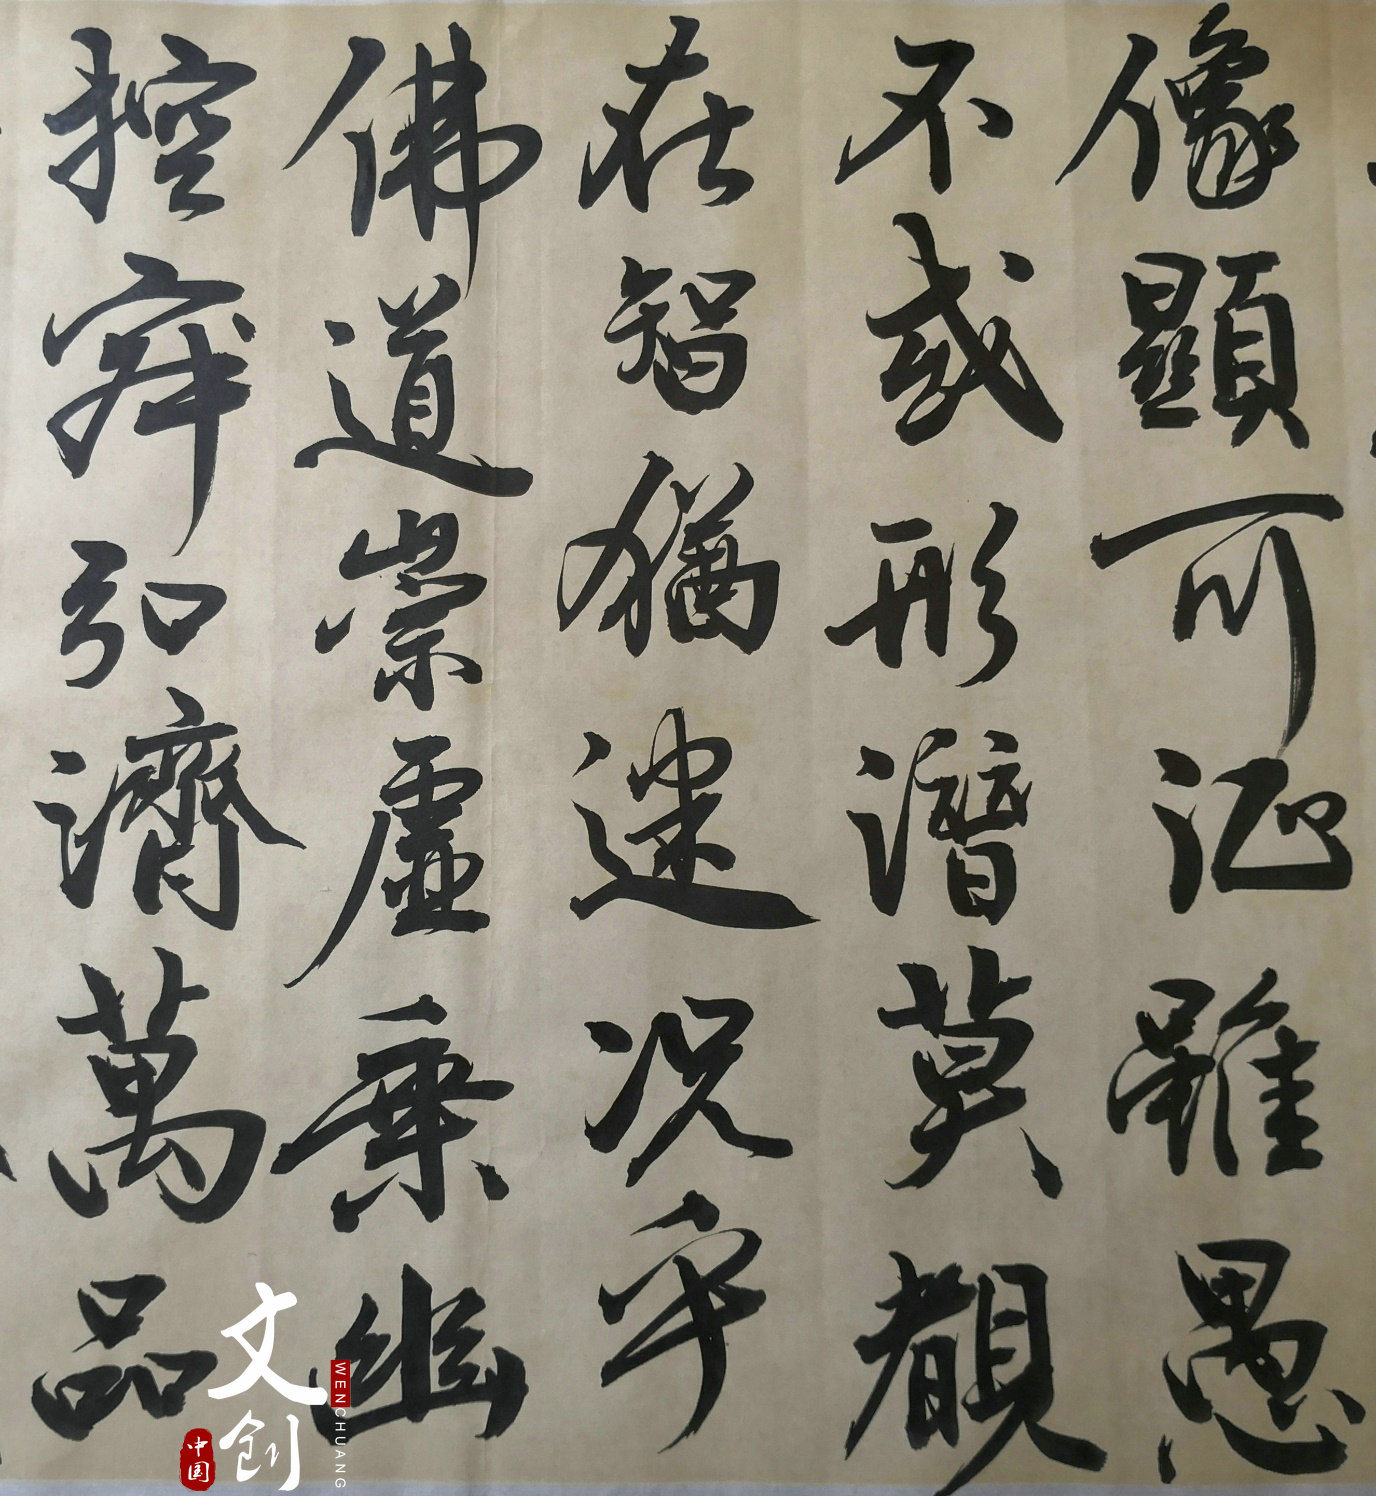 像顯可征雖愚
不惑形潛莫覩
在智猶迷況乎
佛道崇虛乗幽
控寂弘濟萬品
文创
中国
WENCHUANG